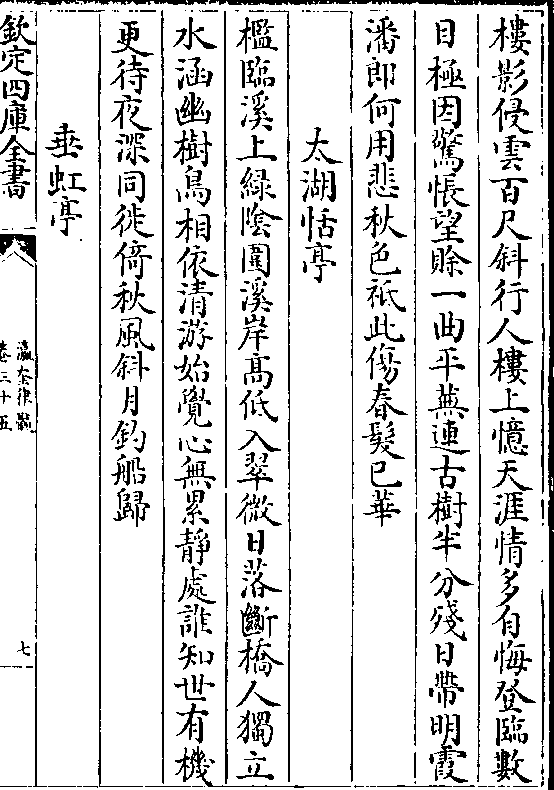 樓影侵雲百尺斜行人樓上憶天涯情多自悔登臨數
目極因驚悵望賒一曲平蕪連古樹半分殘日帶明霞
潘郎何用悲秋色祗此傷春髮已華
太湖恬亭
檻臨溪上綠陰圍溪岸高低入翠微日落斷橋人獨立
水涵幽樹鳥相依清游始覺心無累靜處誰知世有機
更待夜深同徙倚秋風斜月釣船歸
垂虹亭
欽定四庫全書
瀛奎律髓
卷三十五
七